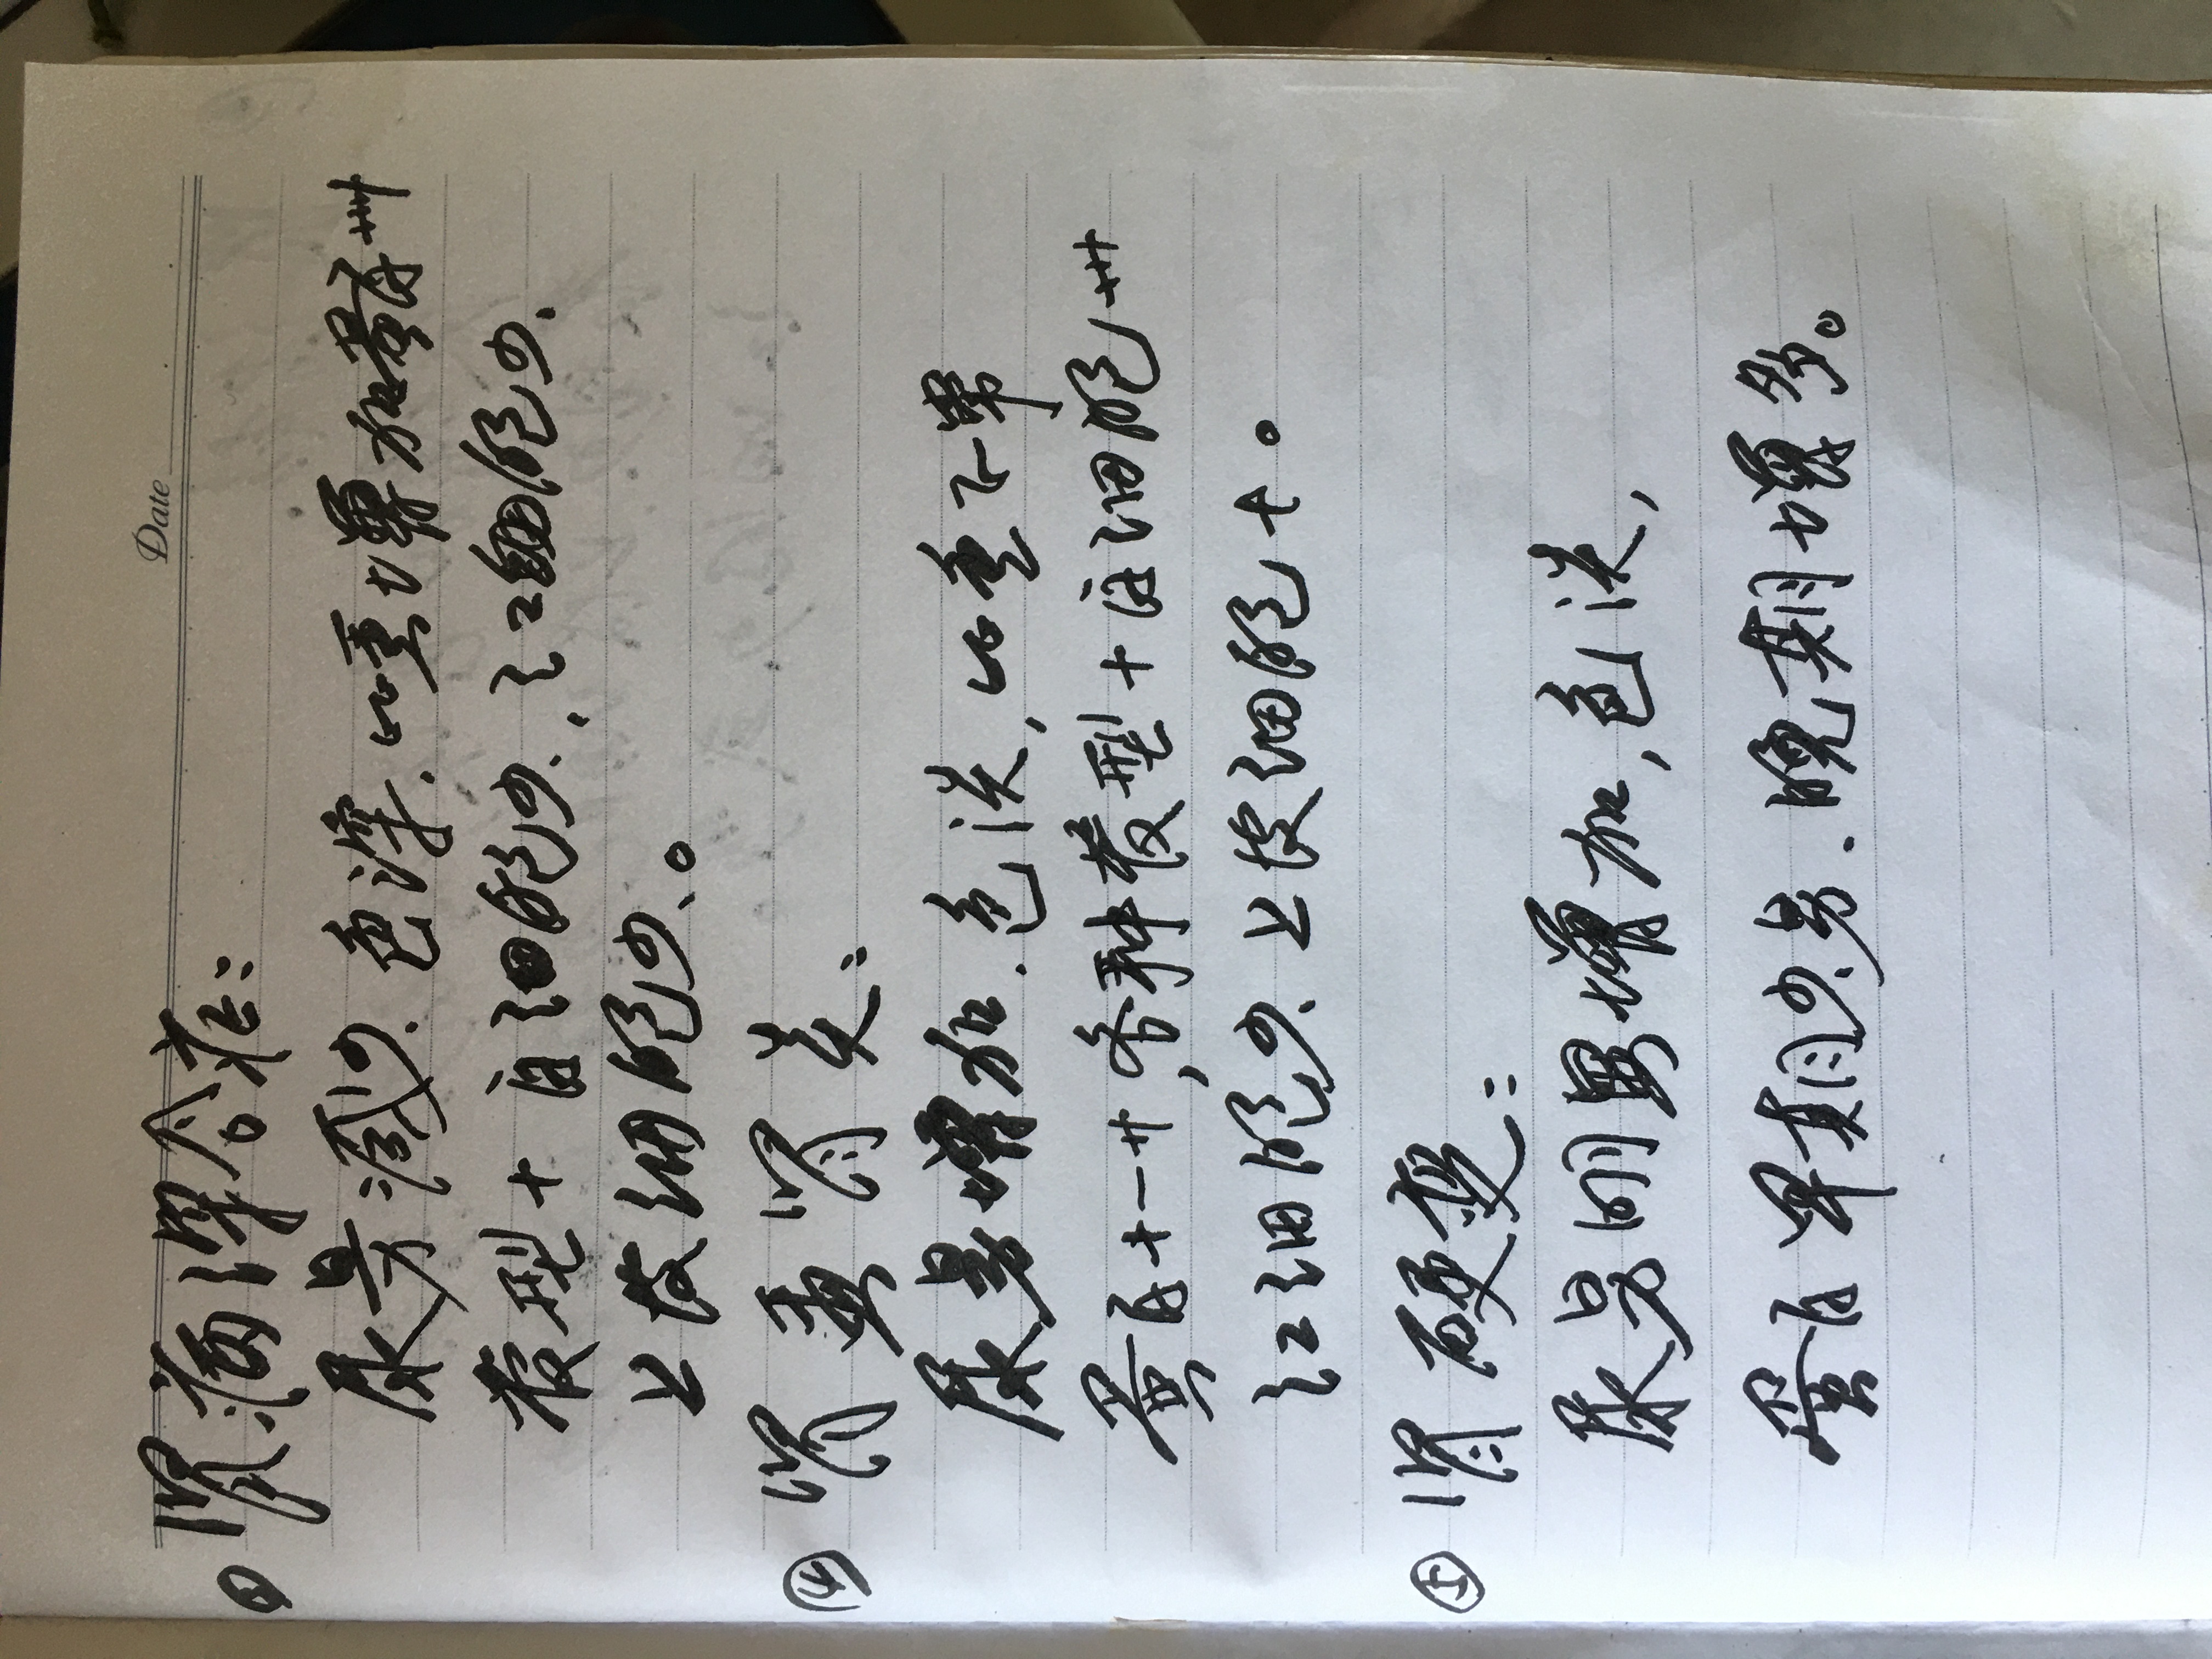 Date
③ 肾病综合症:
尿量减少、色深、比重增加蛋白++++
管型+ 白细胞少、红细胞少、
上皮细胞少、。
④ 肾盂肾炎:
尿量增加、色淡,比重不常
蛋白+-++,各种管型+白细胞+++
红细胞少、上皮细胞+。
⑤ 肾硬变:
尿量明显增加,色淡,
蛋白早期少量、晚期增多。